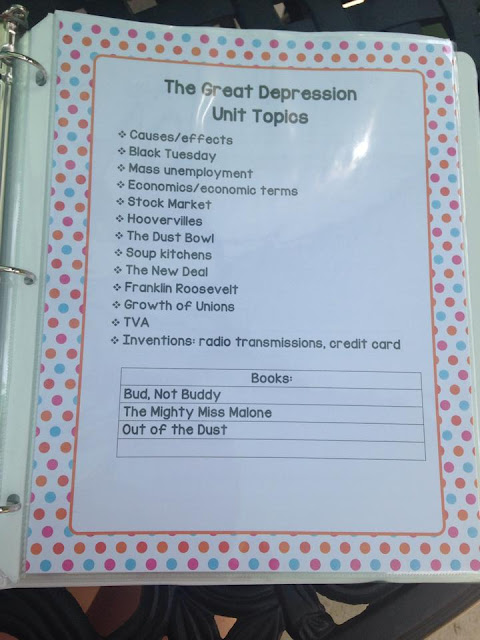 The Great Depression
Unit Topics
❖ Causes/effects
❖ Black Tuesday
❖ Mass unemployment
❖ Economics/economic terms
❖ Stock Market
❖ Hoovervilles
❖ The Dust Bowl
❖ Soup kitchens
❖ The New Deal
❖ Franklin Roosevelt
❖ Growth of Unions
❖ TVA
❖ Inventions: radio transmissions, credit card
Books:
Bud, Not Buddy
The Mighty Miss Malone
Out of the Dust